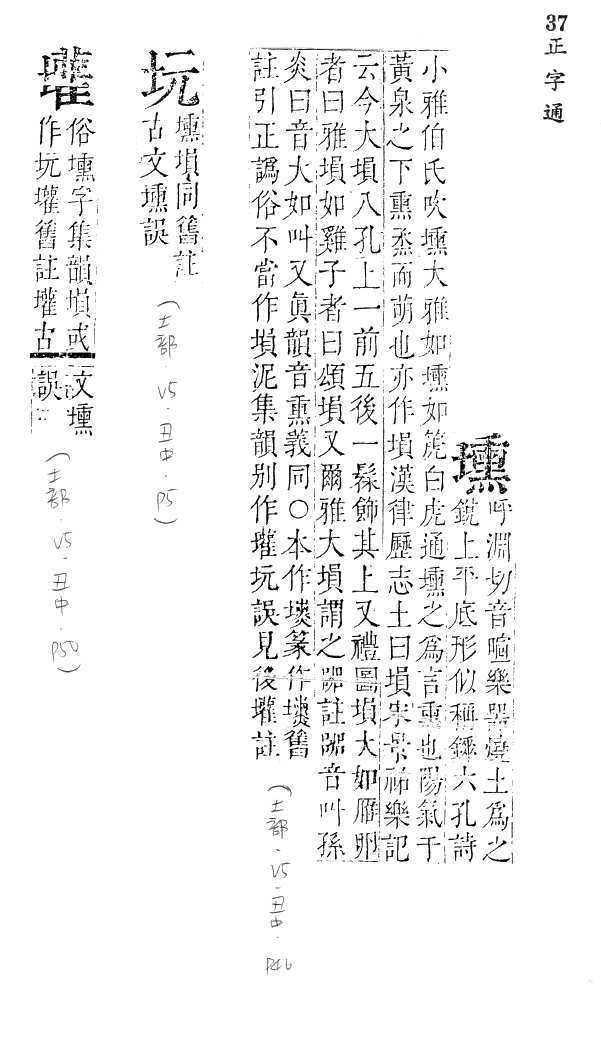 37
正字通
壎
呼淵切音喧樂器燒土爲之
銳上平底形似稱錘六孔詩
小雅伯氏吹壎大雅如壎如篪白虎通壎之爲言熏也陽氣于
黃泉之下熏烝而萌也亦作塤漢律歷志土曰塤宋景祐樂記
云今大塤八孔上一前五後一髹飾其上又禮圖塤大如雁卵
者曰雅塤如雞子者曰頌塤又爾雅大塤謂之嘂註嘂音叫孫
炎曰音大如叫又眞韻音熏義同○本作壎篆作壎舊
註引正譌俗不當作塤泥集韻别作壦坃誤見後壦註
(土部.V5.丑中.P46
坃
壎塤同舊註
古文壎誤
(土部.V5.丑中.P5)
壦
俗壎字集韻塤或
作坃壦舊註壦古
文壎
誤
(土部.V5.丑中.P50)